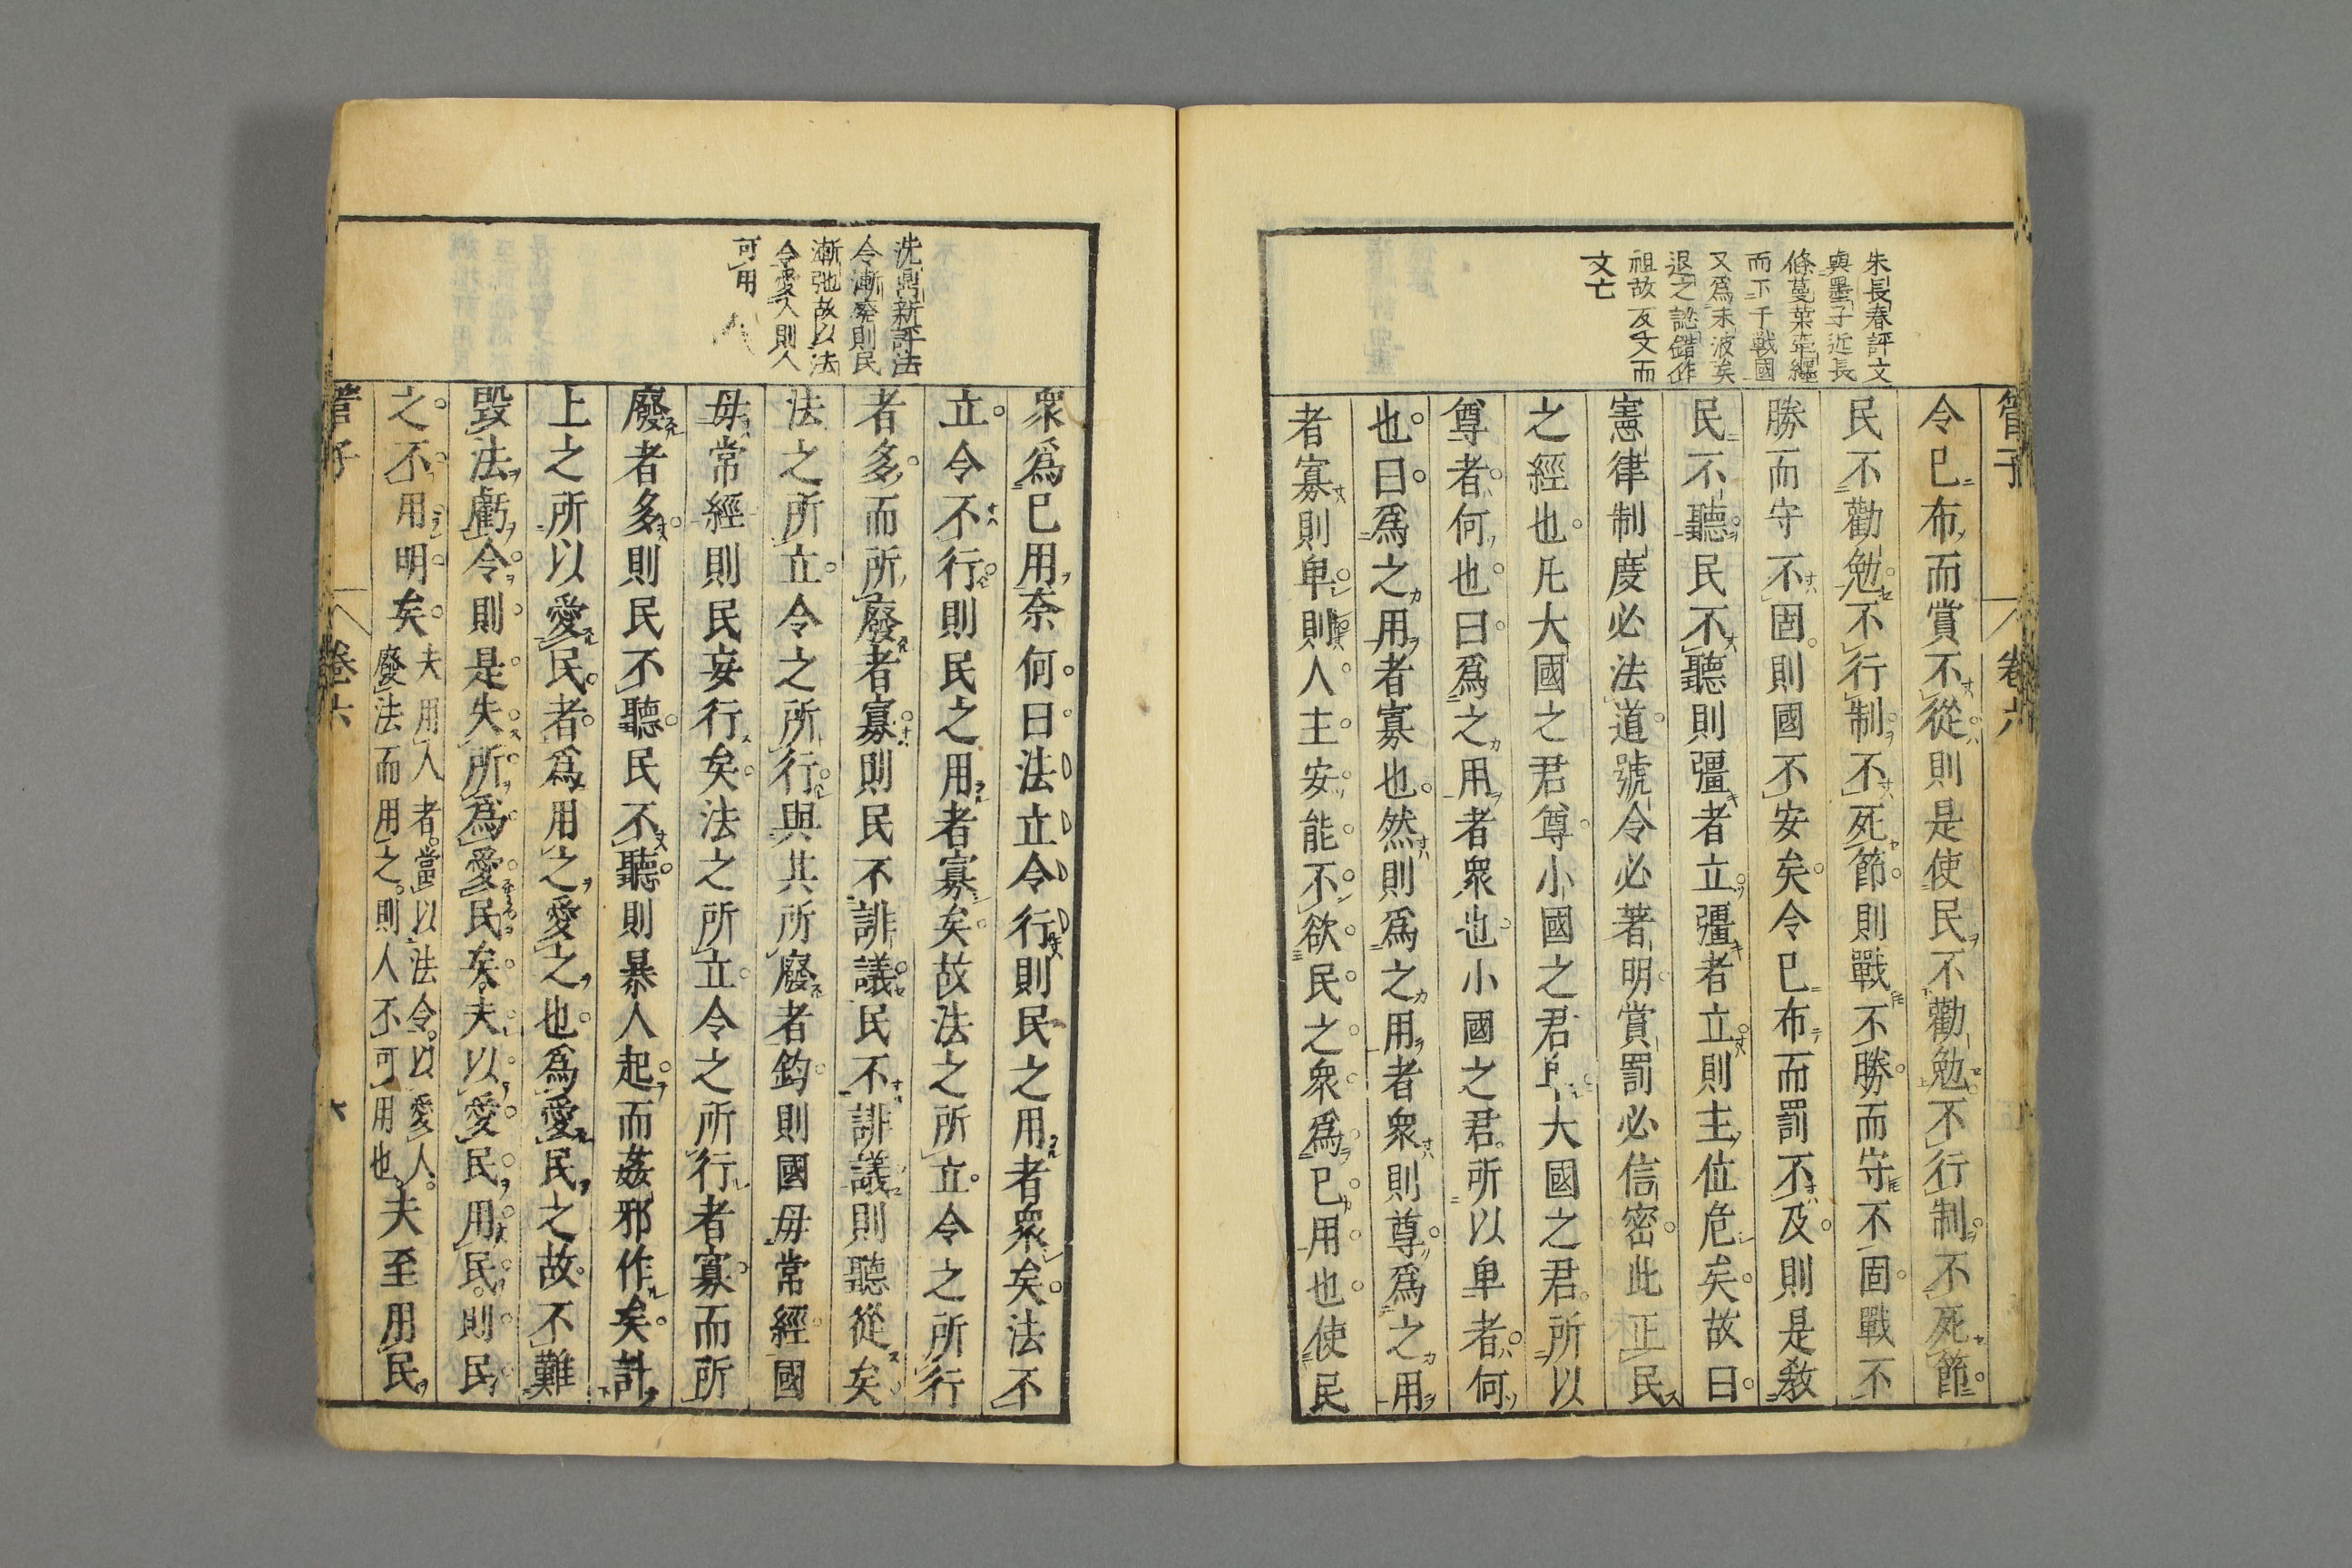 朱長春評文
與墨子近長
條蔓葉率纒
而下于戰國
又爲末波矣
退之認錯作
祖故反文而
文亡
管子
卷六
令已布而賞不從則是使民不勸勉不行制不死節
民不勸勉不行制不死節則戰不勝而守不固戰不
勝而守不固則國不安矣令已布而罰不及則是教
民不聽民不聽則彊者立彊者立則主位危矣故曰
憲律制度必法道號令必著明賞罰必信密此正民
之經也凡大國之君尊小國之君卑大國之君所以
尊者何也曰爲之用者衆也小國之君所以卑者何
也曰爲之用者寡也然則爲之用者衆則尊爲之用
者寡則卑則人主安能不欲民之衆爲已用也使民
沈鼎新評法
令漸廢則民
漸弛故以法
令愛人則人
可用
衆爲已用奈何曰法立令行則民之用者衆矣法不
立令不行則民之用者寡矣故法之所立令之所行
者多而所廢者寡則民不誹議民不誹議則聽從矣
法之所立令之所行與其所廢者鈞則國毋常經國
毋常經則民妄行矣法之所立令之所行者寡而所
廢者多則民不聽民不聽則暴人起而姦邪作矣計
上之所以愛民者爲用之愛之也爲愛民之故不難
毀法虧令則是失所爲愛民矣夫以愛民用民則民
之不用明矣夫用人者當以法令以愛人
廢法而用之則人不可用也夫至用民
管子
卷六
六